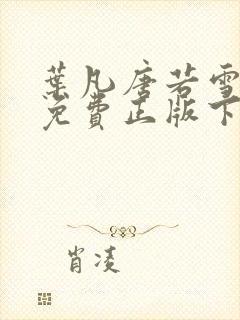 葉凡唐若雪
免費正版下
肖凌